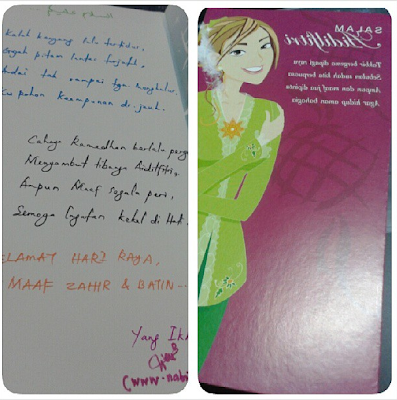 lalu
tak sampai tgn
Ku pohon Keampunan di jauh.
Cahaya Ramadhan berlalu perg
Menyambut tibanya Aidilfitri,
Ampun Maaf segala peri,
Semoga Ingatan kekal di Hati.
ELAMAT HARI RAYA,
MAAF ZAHIR & BATIN--
Yang Ikh
(www.nabi
SALAM
Aidilfitri
Takbir bergema dipagi raya
Sebulan sudah kita berpuasa
Ampun dan maaf jua dipinta
Agar hidup aman bahagia